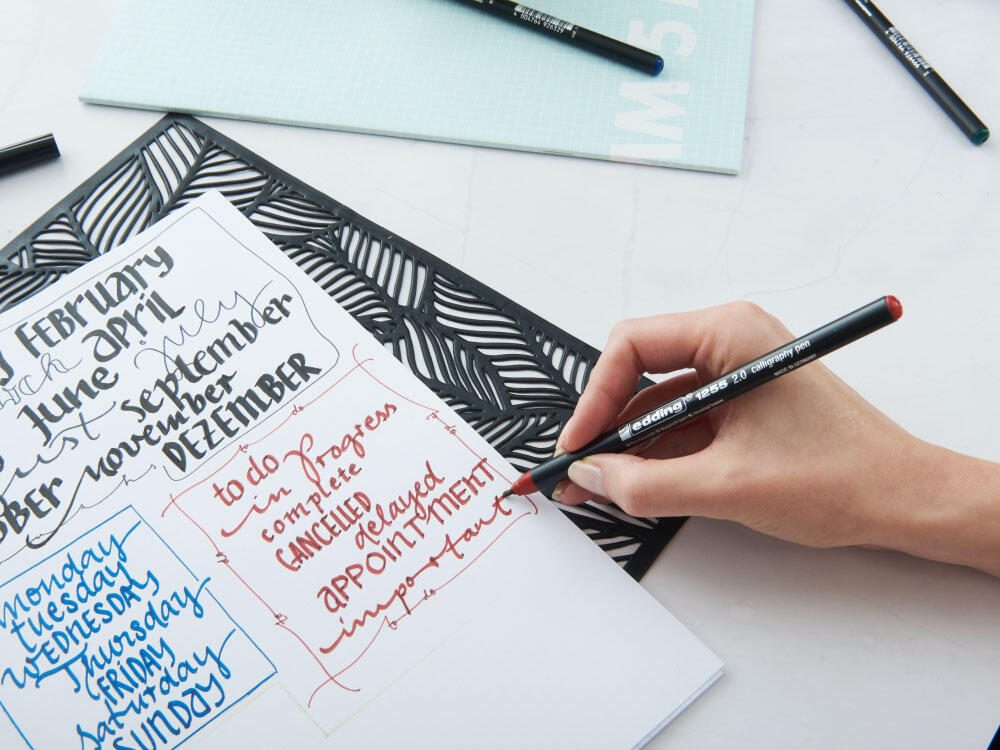 4 004764 926329
M5
FEBRUARY
June april
july
september
november
DEZEMBER
to do
in progress
complete
CANCELLED
delayed
APPOINTMENT
important
monday
tuesday
WEDNESDAY
Thursday
FRIDAY
saturday
SUNDAY
edding® 1255 2.0 calligraphy pen
MADE IN GERMANY